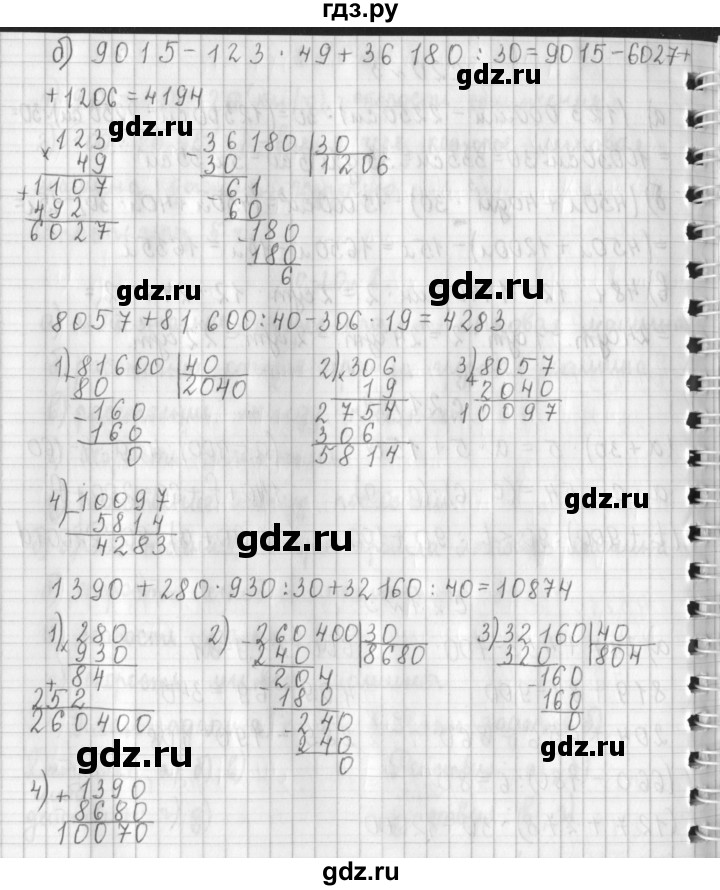 гдз.ру
б) 9015-123·49+36 180:30=9015-6027+
+1206=4194
gdz.ru
gdz.ru
123
× 49
+1107
492
6027
- 36180 | 30
30 | 1206
- 61
60
- 180
180
6
gdz.ru
gdz.ru
8057+81 600:40-306·19=4283
1) - 81600 | 40
80 | 2040
- 160
160
0
2) × 306
19
2754
306
5814
3) + 8057
2040
10097
gdz.ru
4) - 10097
5814
4283
gdz.ru
1390+280·930:30+32160:40=10874
1) × 280
930
+ 84
252
260400
2) - 260400 | 30
240 | 8680
- 204
180
- 240
240
0
3) 32160 | 40
320 | 804
- 160
160
0
gdz.ru
gdz.ru
4) + 1390
8680
10070
gdz.ru